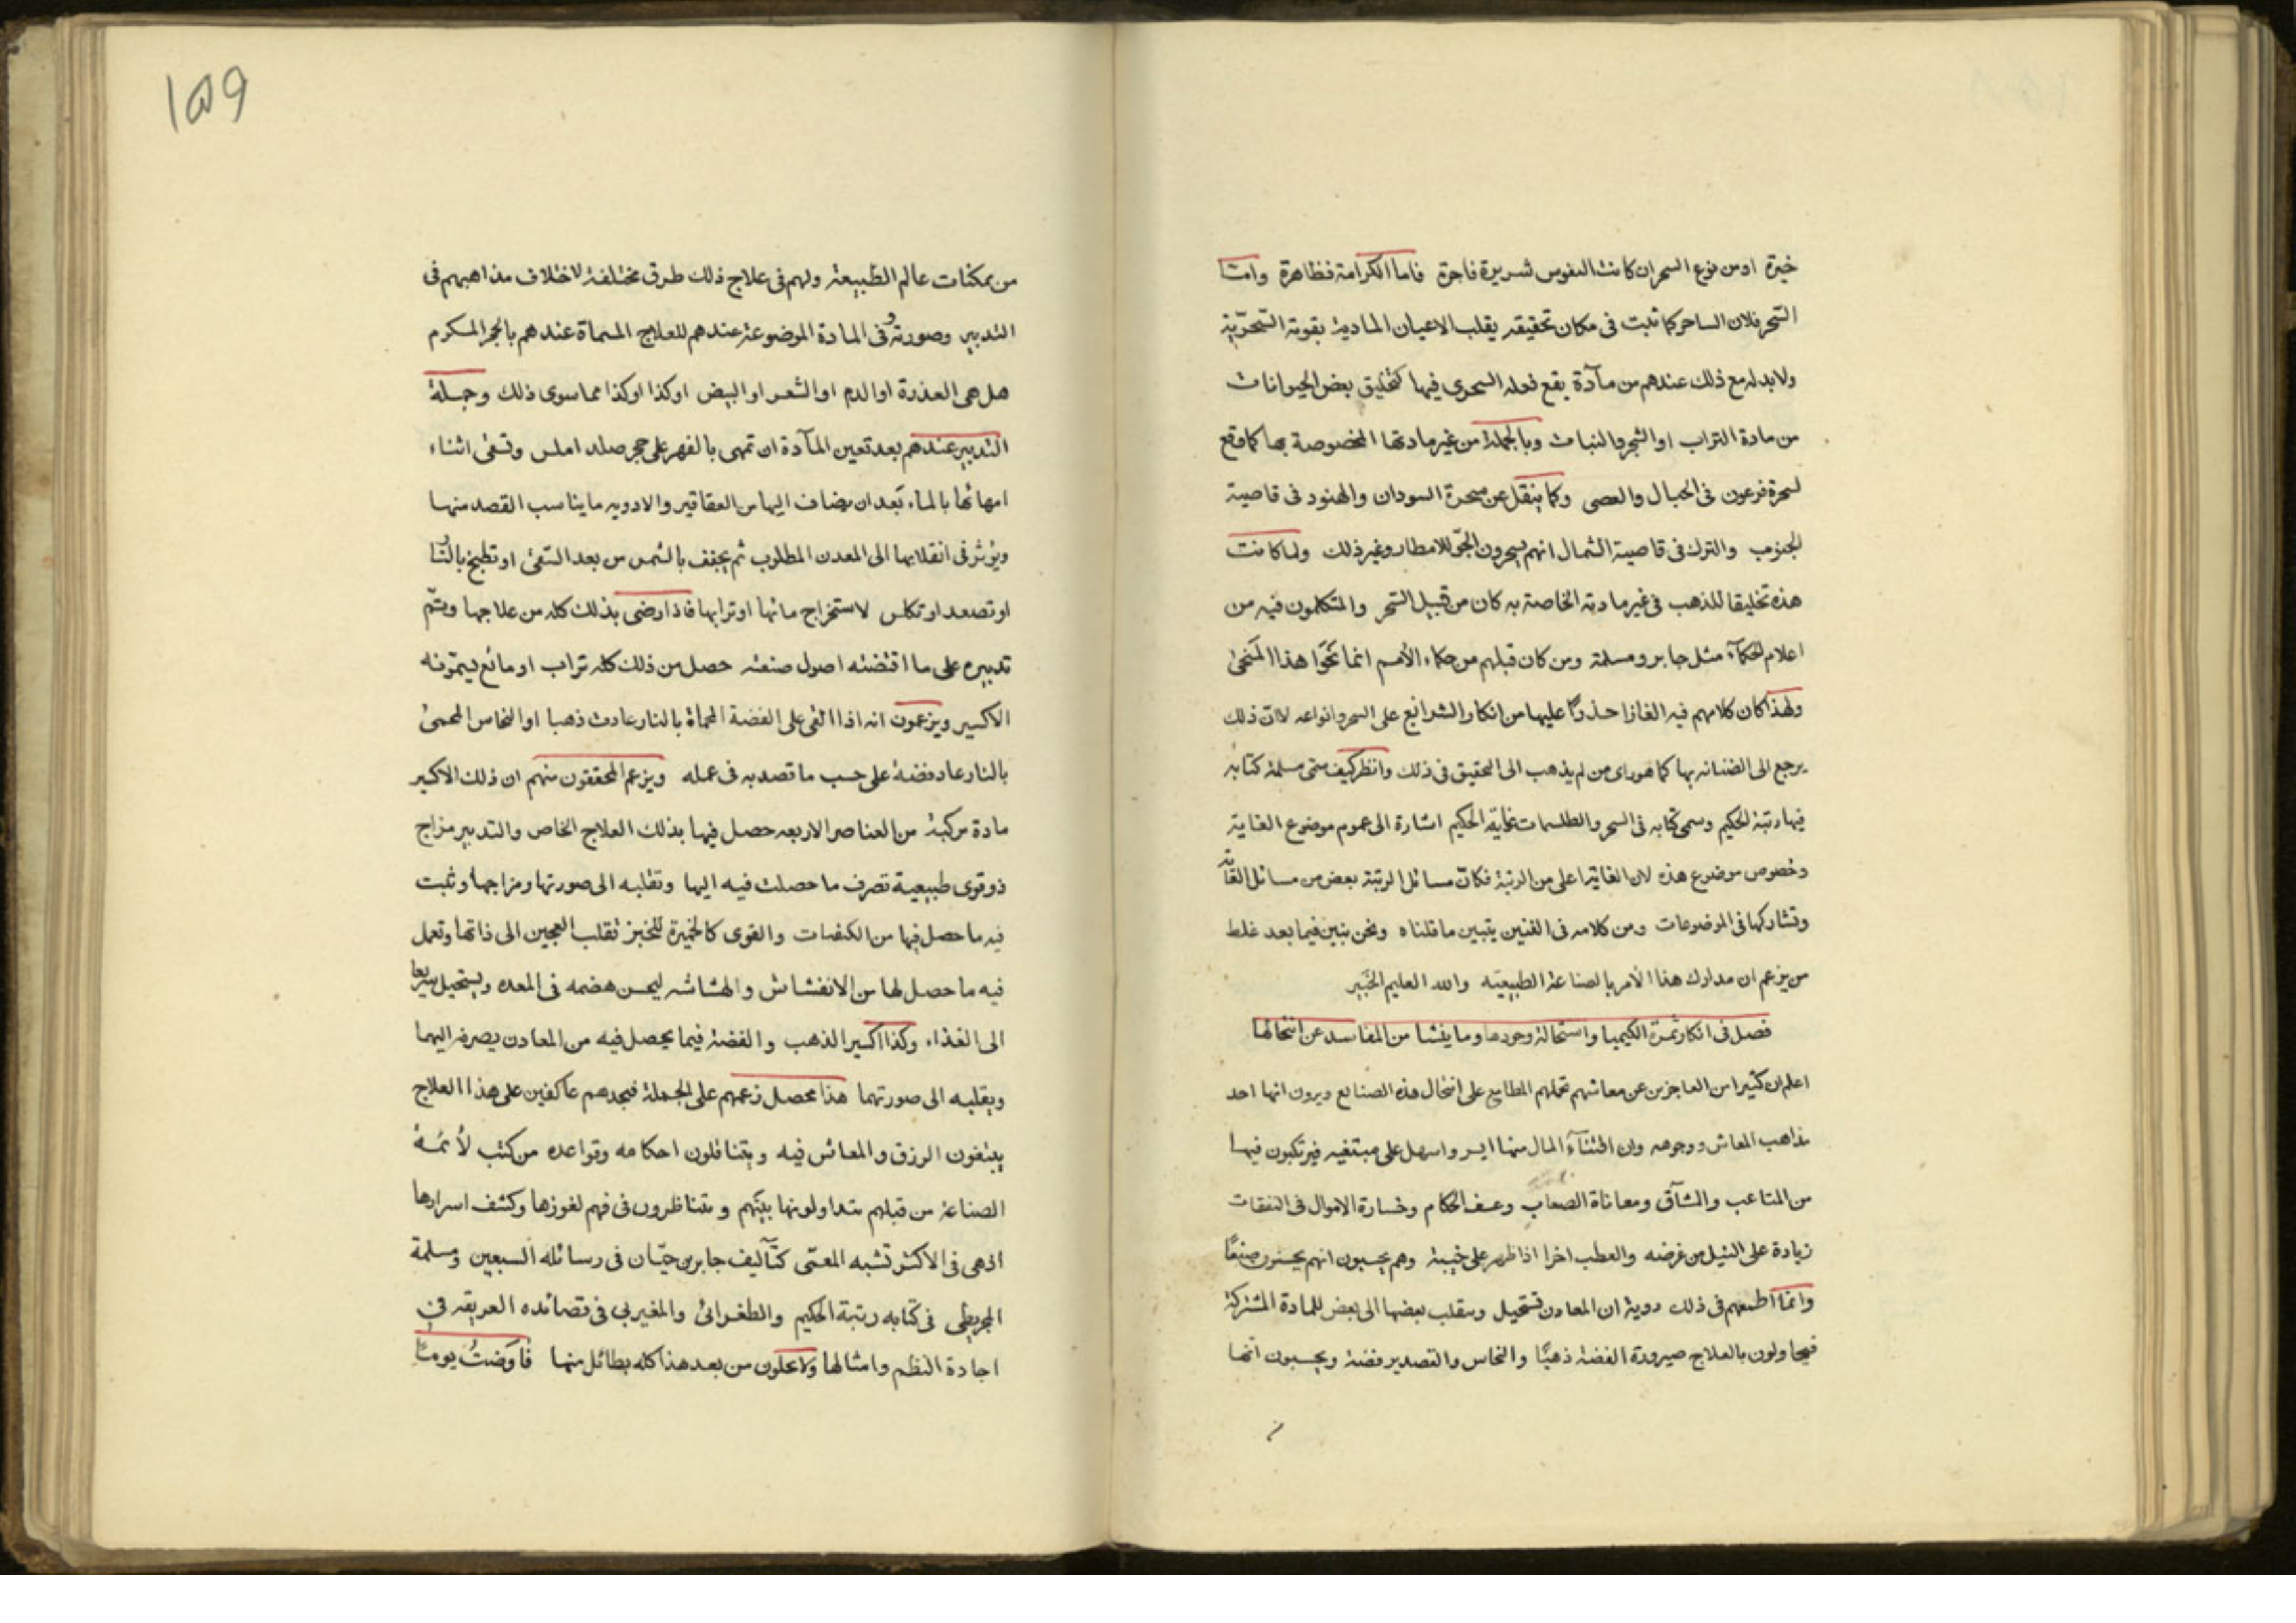 خيرة او من نوع السحر ان كانت النفوس شريرة فاجرة فاما الكرامة فظاهرة وامّا
السّحر فلان الساحر كما ثبت فى مكان تحقيقه يقلب الاعيان المادية بقوته السّحريّة
ولابد له مع ذلك عندهم من مآدّة يقع فعله السحرى فيها كتخليق بعض الحيوانات
من مادة التراب او الشجر والنبات وبالجملة من غير مادتها المخصوصة بها كما وقع
لسحرة فرعون فى الحبال والعصى وكما ينقل عن سحرة السودان والهنود فى قاصية
الجنوب والترك فى قاصية الشمال انهم يسحرون الجوّ للامطار وغير ذلك ولما كانت
هذه تخليقا للذهب فى غير مادته الخاصة به كان من قبيل السّحر والمتكلمون فيه من
اعلام الحكمآء مثل جابر ومسلمة ومن كان قبلهم من حكماء الأمم انما نحَوا هذا المَنحىٰ
ولهذا كان كلامهم فيه الغازا حذرًا عليها من انكار الشرائع على السحر وانواعه لا انّ ذلك
يرجع الى الضنانه بها كما هو راى من لم يذهب الى التحقيق فى ذلك وانظر كيف سمّى مسلمة كتابه
فيها رتبة الحكيم وسمى كتابه فى السحر والطلسمات غاية الحكيم اشارة الى عموم موضوع الغاية
وخصوص موضوع هذه لان الغاية اعلى من الرتبة فكانّ مسائل الرتبة بعض من مسائل الغاية
وتشاركها فى الموضوعات ومن كلامه فى الفنين يتبين ما قلناه ونحن نبيّن فيما بعد غلط
من يزعم ان مدارك هذا الأمر بالصناعة الطبيعيّه والله العليم الخبير
فصل فى انكار ثمرة الكيميا واستحالة وجودها وما ينشا من المفاسد عن انتحالها
اعلم ان كثيرا من العاجزين عن معاشهم تحملهم المطامع على انتحال هذه الصنايع ويرون انها احد
مذاهب المعاش ووجوهه وان اقتنآءَ المال منها ايسر واسهل على مبتغيه فيرتكبون فيها
من المتاعب والمشآق ومعاناة الصعاب وعسف الحكام وخسارة الاموال فى النفقات
زيادة على النيل من غرضه والعطب اخرا اذا ظهر على خيبة وهم يحسبون انهم يحسنون صنعًا
وانمّا اطمعهم فى ذلك روية ان المعادن تستحيل وينقلب بعضها الى بعض للمادة المشتركة
فيحاولون بالعلاج صيرورة الفضة ذهبًا والنحاس والقصدير فضة ويحسبون انها
١٥٩
من ممكنات عالم الطّبيعة ولهم فى علاج ذلك طرق مختلفة لاختلاف مذاهبهم فى
التدبير وصورته وفى المادة الموضوعة عندهم للعلاج المسماة عندهم بالحجر المكرم
هل هى العذرة او الدم او الشعر او البيض او كذا او كذا مما سوى ذلك وجملة
التدبير عندهم بعد تعين المآدة ان تمهى بالفهر على حجر صلد املس وتسقى اثناء
امهائها بالماء بَعد ان يضاف اليها من العقاقير والادويه ما يناسب القصد منها
ويؤثر فى انقلابها الى المعدن المطلوب ثم يجفف بالشمس من بعد السّقى او تطبخ بالنّار
او تصعد او تكلس لاستخراج مائها او ترابها فاذا رضى بذلك كله من علاجها وتمّ
تدبيره على ما اقتضته اصول صنعته حصل من ذلك كله تراب او مائع يسمّونه
الاكسير ويزعمون انه اذا القى على الفضة المحماة بالنار عادت ذهبا او النحاس المحمىٰ
بالنار عاد فضة على حسب ما قصد به فى عمله ويزعم المحققون منهم ان ذلك الاكسير
مادة مركبة من العناصر الاربعه حصل فيها بذلك العلاج الخاص والتدبير مزاج
ذو قوى طبيعية تصرف ما حصلت فيه اليها وتقلبه الى صورتها ومزاجها وتثبت
فيه ما حصل فيها من الكيفيات والقوى كالخميرة للخبز تقلب العجين الى ذاتها وتعمل
فيه ما حصل لها من الانفشاش والهشاشه ليحسن هضمه فى المعده ويستحيل سريعا
الى الغذاء وكذا اكسير الذهب والفضة فيما يحصل فيه من المعادن يصرفه اليهما
ويقلبه الى صورتهما هذا محصل زعمهم على الجملة فنجدهم عاكفين على هذا العلاج
يبتغون الرزق والمعاش فيه ويتناقلون احكامه وقواعده من كتب لأئمة
الصناعة من قبلهم يتداولونها بينَهم ويتناظرون فى فهم لغوزها وكشف اسرارها
اذ هى فى الاكثر تشبه المعمّى كتآليف جابر بن حيّان فى رسائله السبعين ومسلمة
المجريطى فى كتابه رتبة الحكيم والطغرائى والمغيربى فى قصائده العريقة فى
اجادة النظم وامثالها ولا يحلون من بعد هذا كله بطائل منها فاوَضتُ يومًا